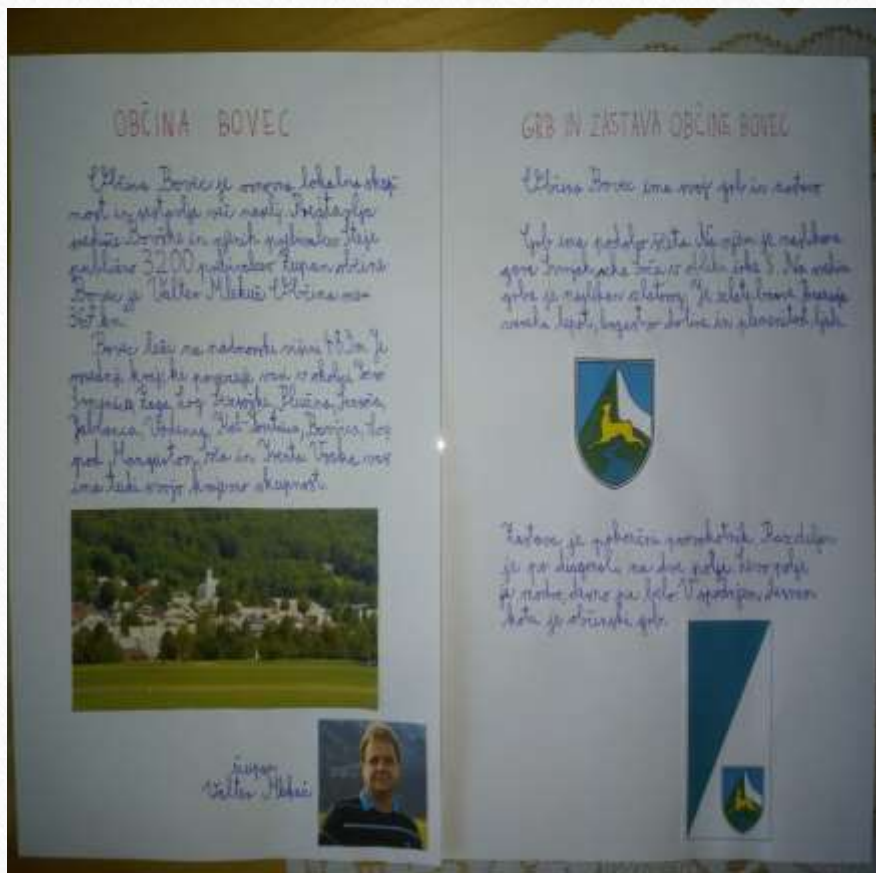 OBČINA BOVEC
Občina Bovec je osnovna lokalna skup
nost in sestavlja več naselij. Predstavlja
središče Bovške in njenih prebivalcev. Šteje
približno 3200 prebivalcev. Župan občine
Bovec je Valter Mlekuž. Občina
367 km
Bovec leži na nadmorski višini
ki povezuje vasi v okolici
Žaga, Log Čezsoški, Plužna, Čezsoča,
Jablenca, Vodenca, Kal-Koritnica, Bavšica, Log
pod Mangartom, in Trenta. Vsaka vas
ima tudi svojo krajevno skupnost.
župan
Valter Mlekuž
GRB IN ZASTAVA OBČINE BOVEC
Občina Bovec ima svoj grb in zastavo.
Grb ima podobo ščita. Na njem je naslikana
gora Svinjak, reka Soča v obliki črke S. Na sredini
grba je naslikan zlatorog.
lepoto, bogastvo in plemenitost ljudi.
Zastava je pokončni pravokotnik. Razdeljen
je po diagonali na dve polji. Levo polje
je modro, desno pa belo. V spodnjem desnem
kotu je občinski grb.